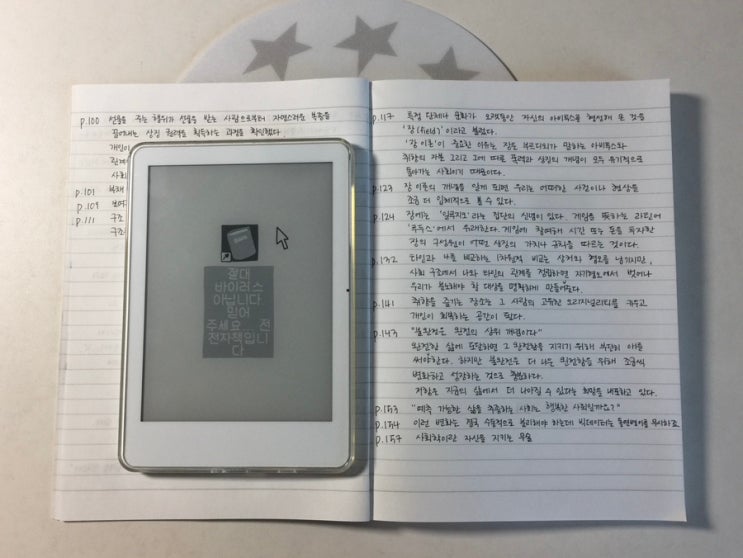 p.100 선물을 주는 행위가 선물을 받는 사람으로부터 자연스러운 복종을
끌어내는 상징 권력을 획득하는 과정을 확인했다.
개인이
관계
사회
p.101 부채
p.109 보여
p.111 구조
구조
절대
바이러스
아닙니다
믿어
주세요 전
전자책입니
다
p.117 특정 단체나 문화가 오랫동안 자신의 아비투스를 형성해 온 것을
'장(field)'이라고 불렀다.
'장 이론'이 중요한 이유는 전술 부르디외가 말하는 아비투스와
취향의 자본 그리고 그에 따른 폭력과 상징의 개념이 모두 유기적으로
돌아가는 사회이기 때문이다.
p.123 장 이론의 개념을 알게 되면 우리는 어떠한 사건이나 현상을
조금 더 입체적으로 볼 수 있다.
p.124 장에는 '일루지오'라는 집단의 신념이 있다. 게임을 뜻하는 라틴어
'루두스'에서 유래한다. 게임에 참여해 시간 또는 돈을 투자한
장의 구성원이 어떤 상징의 가치나 규칙을 따르는 것이다.
p.132 타인과 나를 비교하는 1차원적 비교는 상처와 혐오를 남기지만,
사회 구조에서 나와 타인의 관계를 정립하면 자기혐오에서 벗어나
우리가 분노해야 할 대상을 명확하게 만들어준다.
p.141 취향을 즐기는 장소는 그 사람의 고유한 오리지널리티를 키우고
개인이 회복하는 공간이 된다.
p.143 "불완전은 완전의 상위 개념이다"
완전한 삶에 도달하면 그 완전함을 지키기 위해 부단히 애를
써야한다. 하지만 불완전은 더 나은 완전함을 위해 조금씩
변화하고 성장하는 것으로 충분하다.
저항은 지금의 삶에서 더 나아질 수 있다는 희망을 내포하고 있다.
p.153 "예측 가능한 삶을 추종하는 사회는 행복한 사회일까요?"
p.154 이런 변화는 결국 수동적으로 분리해야 하는데 빅데이터는 돌연변이를 무시하죠.
p.157 사회학이란 자신을 지키는 무술